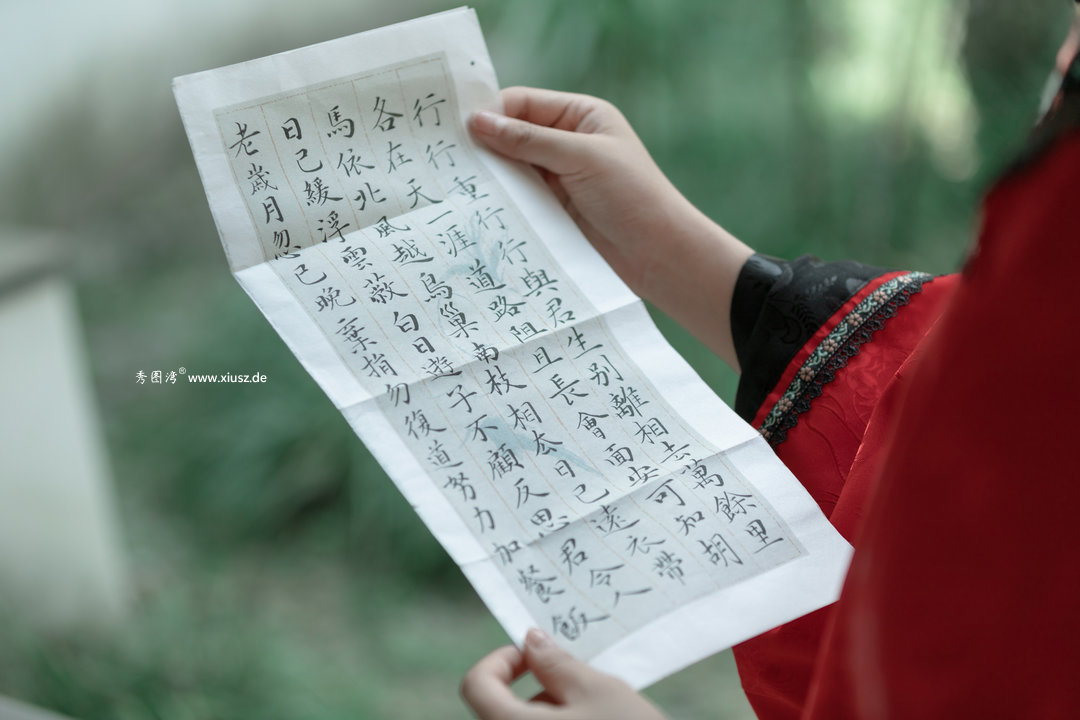 行行重行行與君生別離相去萬餘里
各在天一涯道路阻且長會面安可知胡
馬依北風越鳥巢南枝相去日已遠衣帶
日已緩浮雲蔽白日遊子不顧反思君令人
老歲月忽已晚棄捐勿復道努力加餐飯
秀图湾® www.xiusz.de